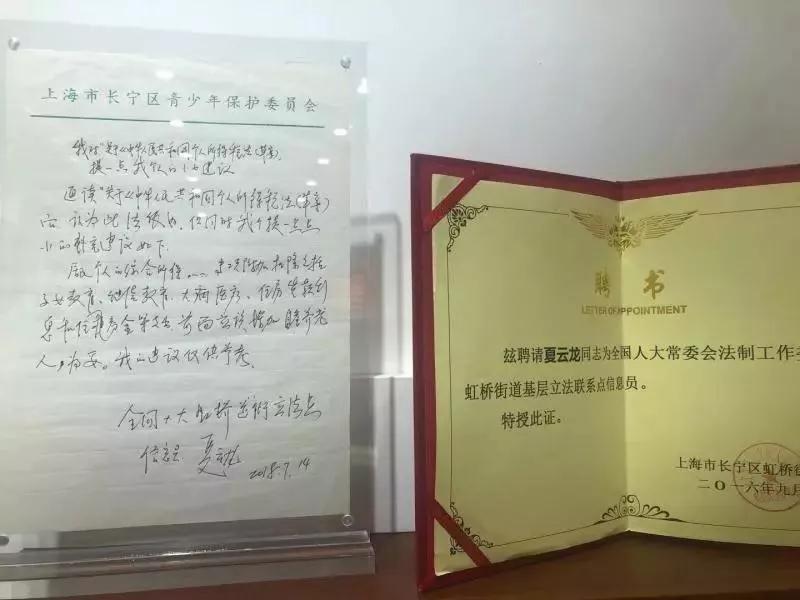 上海市长宁区青少年保护委员会
我对"关于《中华人民共和国个人所得税法(草案)
提一点我个人的小建议
通读"关于《中华人民共和国个人所得税法(草案)
后 认为此法很好,但同时我个提一点点
小的补充建议如下
居民个人的综合所得
子女教育、继续教育、大病医疗、住房贷款利
息和住房租金等支出 前面应该增加赡养老
人为妥。我的建议仅供参考。
全国人大虹桥街道立法点
信息员 夏云龙
2018.7.14
聘书
LETTER OF APPOINTMENT
兹聘请夏云龙同志为全国人大常委会法制工作委
虹桥街道基层立法联系点信息员。
特授此证。
上海市长宁区虹桥街
二〇一六年九月